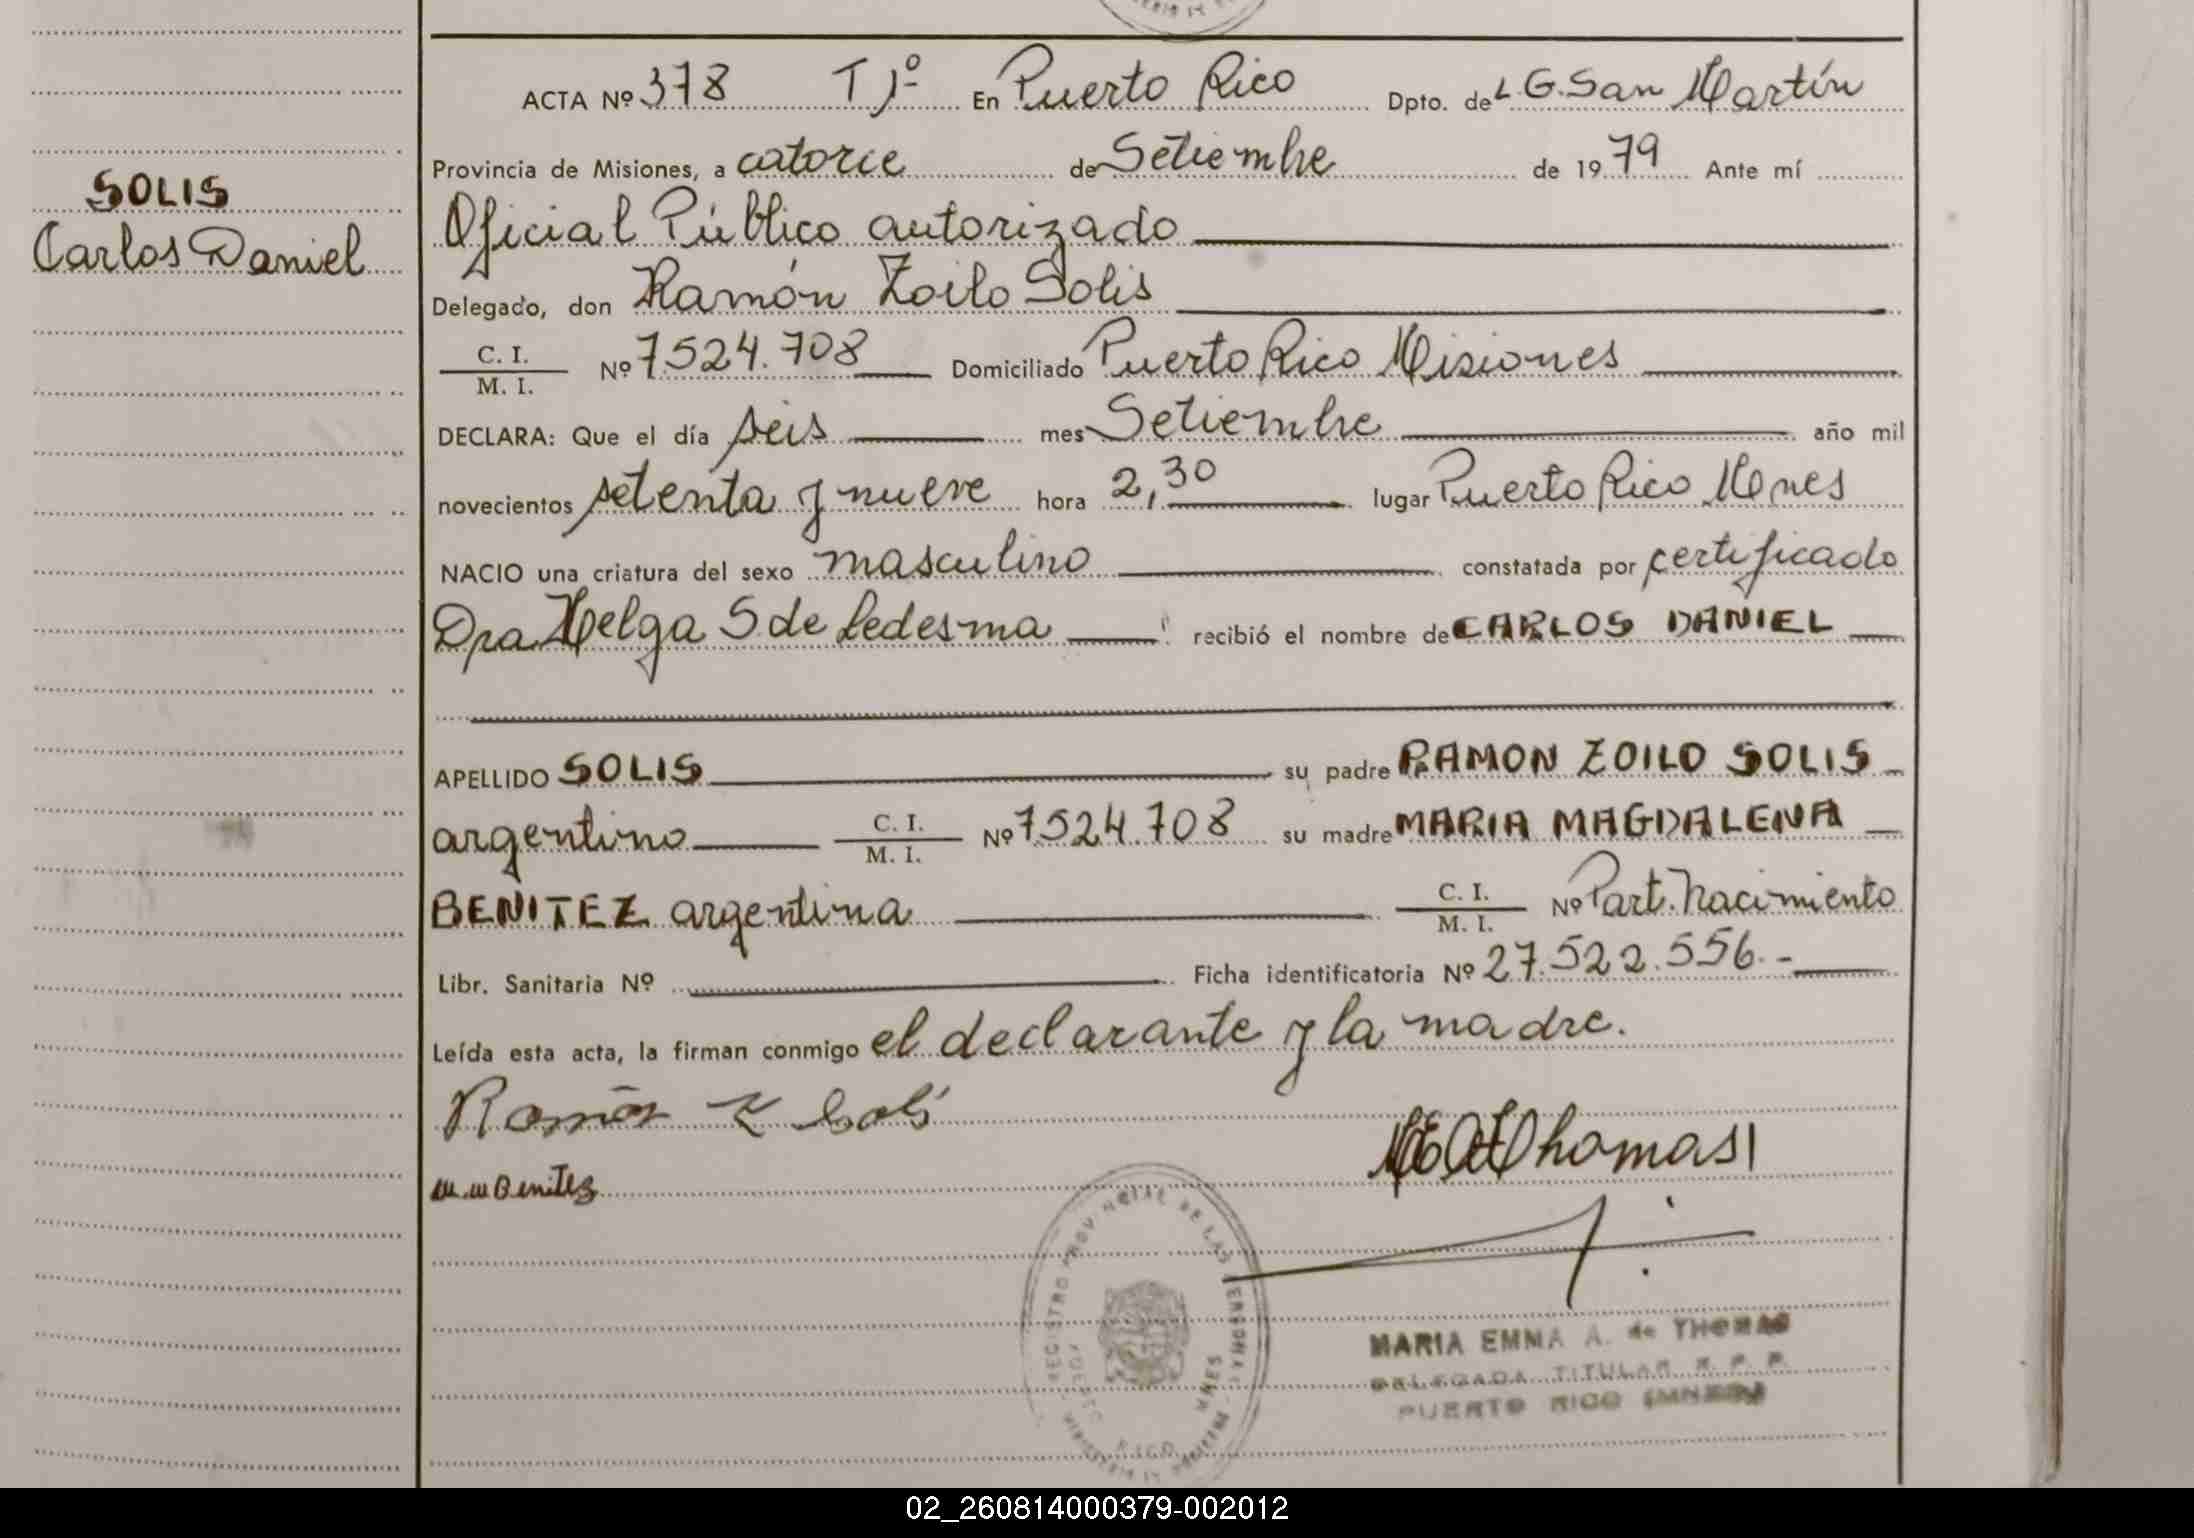 SOLIS
Carlos Daniel
ACTA Nº 378 T 1º En Puerto Rico Dpto. de L G. San Martín
Provincia de Misiones, a catorce de Setiembre de 1979 Ante mí
Oficial Público autorizado
Delegado, don Ramón Zoilo Solis
C. I.
M. I.
Nº 7.524.708 Domiciliado Puerto Rico Misiones
DECLARA: Que el día seis mes Setiembre año mil
novecientos setenta y nueve hora 2,30 lugar Puerto Rico Mnes
NACIO una criatura del sexo masculino constatada por certificado
Dra Helga S. de Ledesma recibió el nombre de CARLOS DANIEL
APELLIDO SOLIS su padre RAMON ZOILO SOLIS
argentino C. I. M. I. Nº 7.524.708 su madre MARIA MAGDALENA
BENITEZ argentina C. I. M. I. Nº Part. Nacimiento
Libr. Sanitaria Nº Ficha identificatoria Nº 27.522.556.-
Leída esta acta, la firman conmigo el declarante y la madre.
Ramón Z Solis
M. M Benitez
Thomas
REGISTRO PROVINCIAL DE LAS PERSONAS
MNES
RICO
MARIA EMMA A. de THOMAS
DELEGADA TITULAR R. P. P.
PUERTO RICO (MNES)
02_260814000379-002012